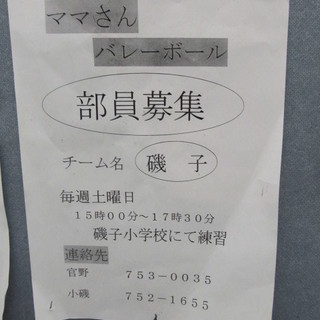 ママさん
バレーボール
部員募集
チーム名 磯 子
毎週土曜日
15時00分～17時30分
磯子小学校にて練習
連絡先
官野 753-0035
小磯 752-1655